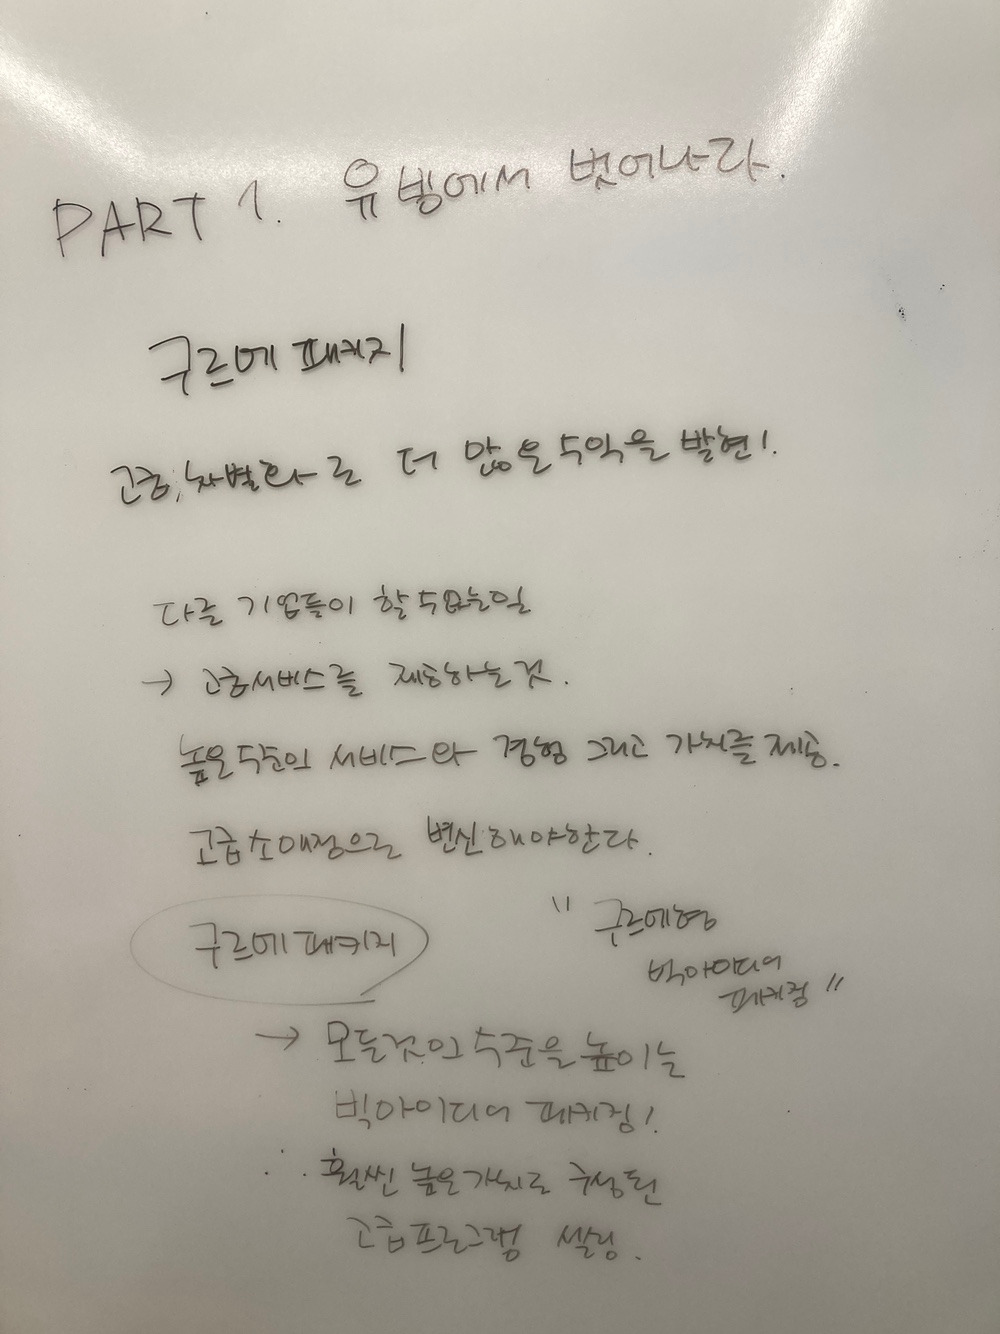 PART 1. 유빙에서 벗어나라.
구르메 패키지
고급, 차별화로 더 많은 수익을 발현!
다른 기업들이 할 수 없는 일
→ 고급서비스를 제공하는 것.
높은 수준의 서비스와 경험 그리고 가치를 제공.
고급 소매점으로 변신해야한다.
구르메 패키지
"구르메형
빅아이디어
패키징"
→ 모든것의 수준을 높이는
빅아이디어 패키징!
∴ 훨씬 높은 가치로 구성된
고급프로그램 셀링.